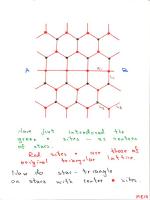 A B
Have just introduced the
green • sites — as centers
of stars.
Red sites • are those of
original triangular lattice.
Now do star - triangle
on stars with center • sites